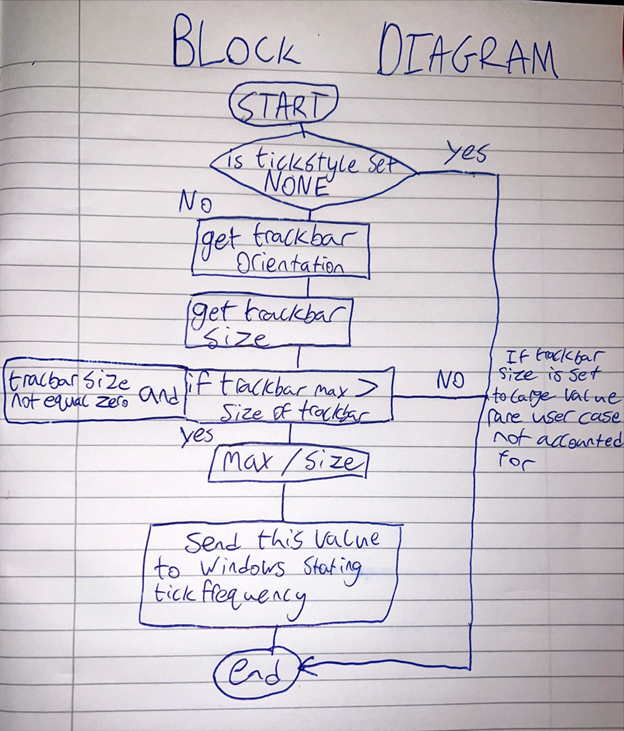 BLOCK DIAGRAM
START
is tickstyle set
NONE
yes
NO
get trackbar
Orientation
get trackbar
Size
tracbar size
not equal zero and
if trackbar max >
Size of trackbar
NO
If trackbar
Size is set
to large value
rare user case
not accounted
for
yes
Max / Size
Send this value
to Windows stating
tick frequency
end